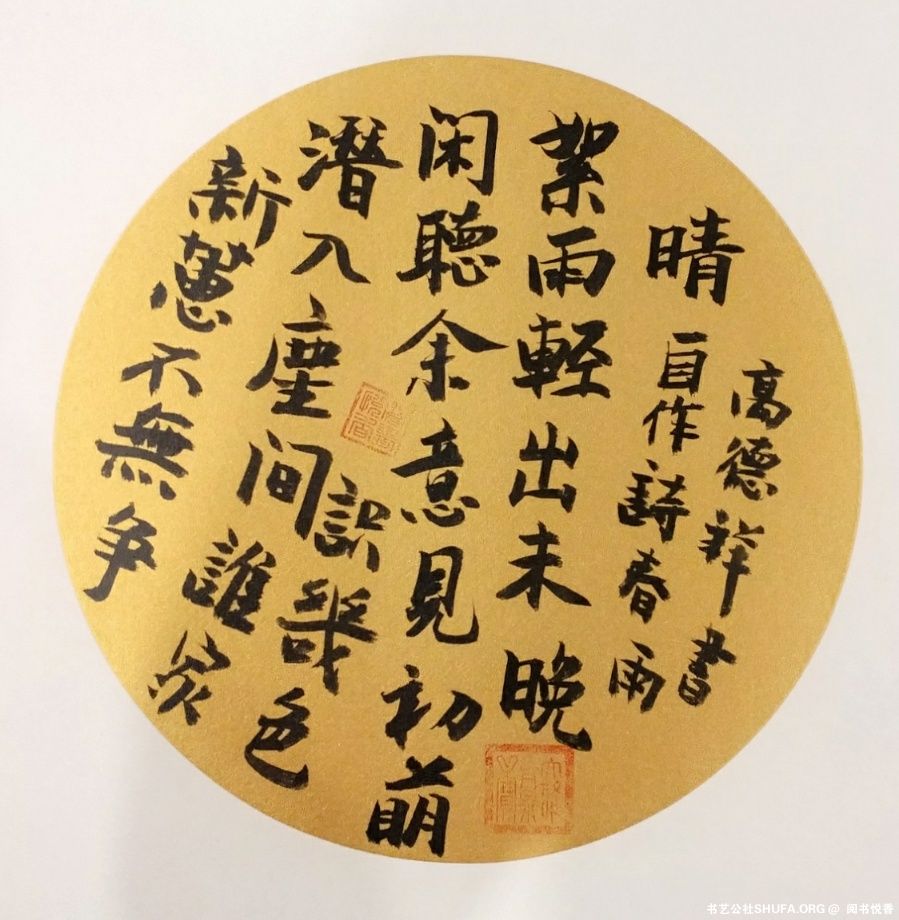 絮雨輕出未晚
晴
闲聽余意見初萌
潛入塵间
識幾色
誰家
新不無争
自作詩春雨
高德祥書
书艺公社SHUFA.ORG @ 阅书悦香